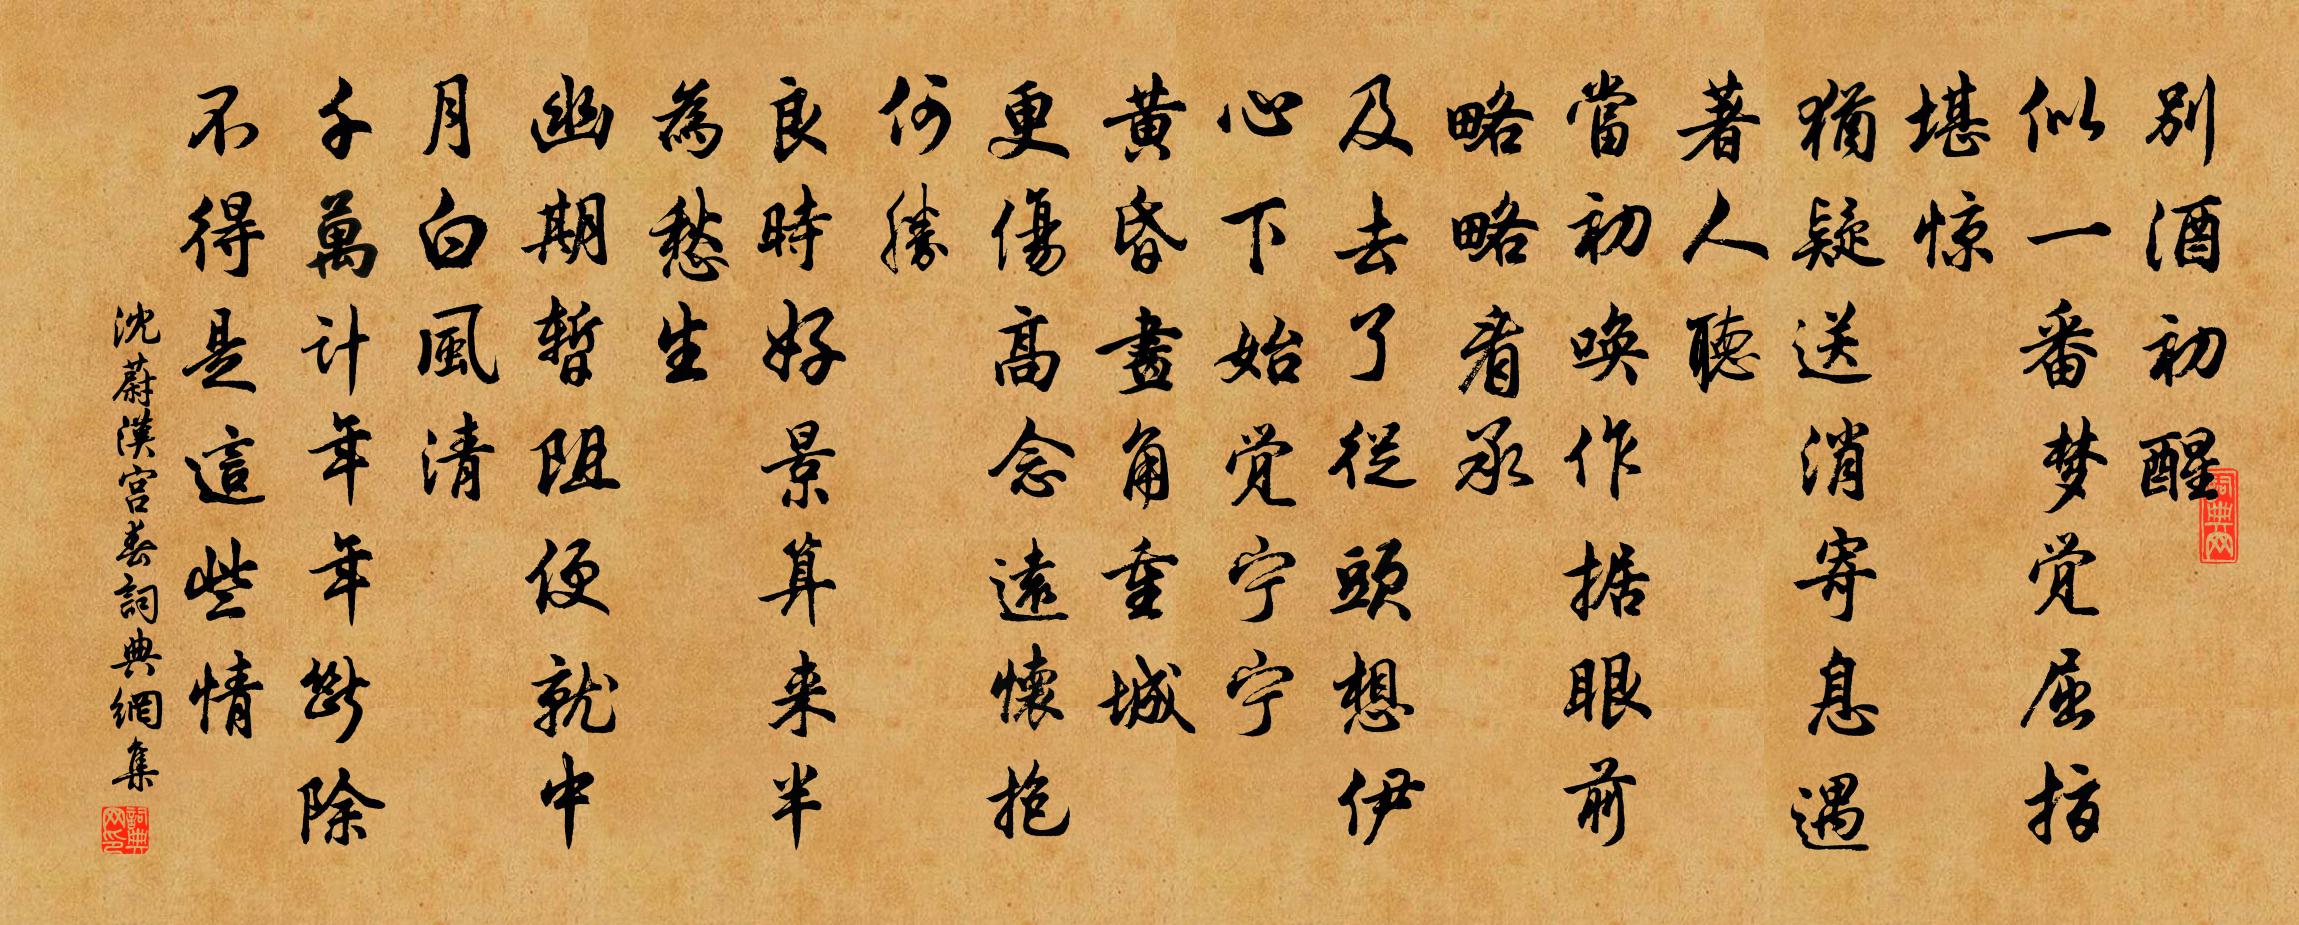 別酒初醒
似一番梦觉屈指
堪惊
猶疑送消寄息遇
著人聽
當初唤作据眼前
略略看承
及去了從頭想伊
心下始觉宁宁
黄昏畫角重城
更傷高念遠懷抱
何勝
良時好景算来半
為愁生
幽期暫阻便就中
月白風清
千萬計年年斷除
不得是這些情
沈蔚漢宫春詞典網集
词典网
詞典网印